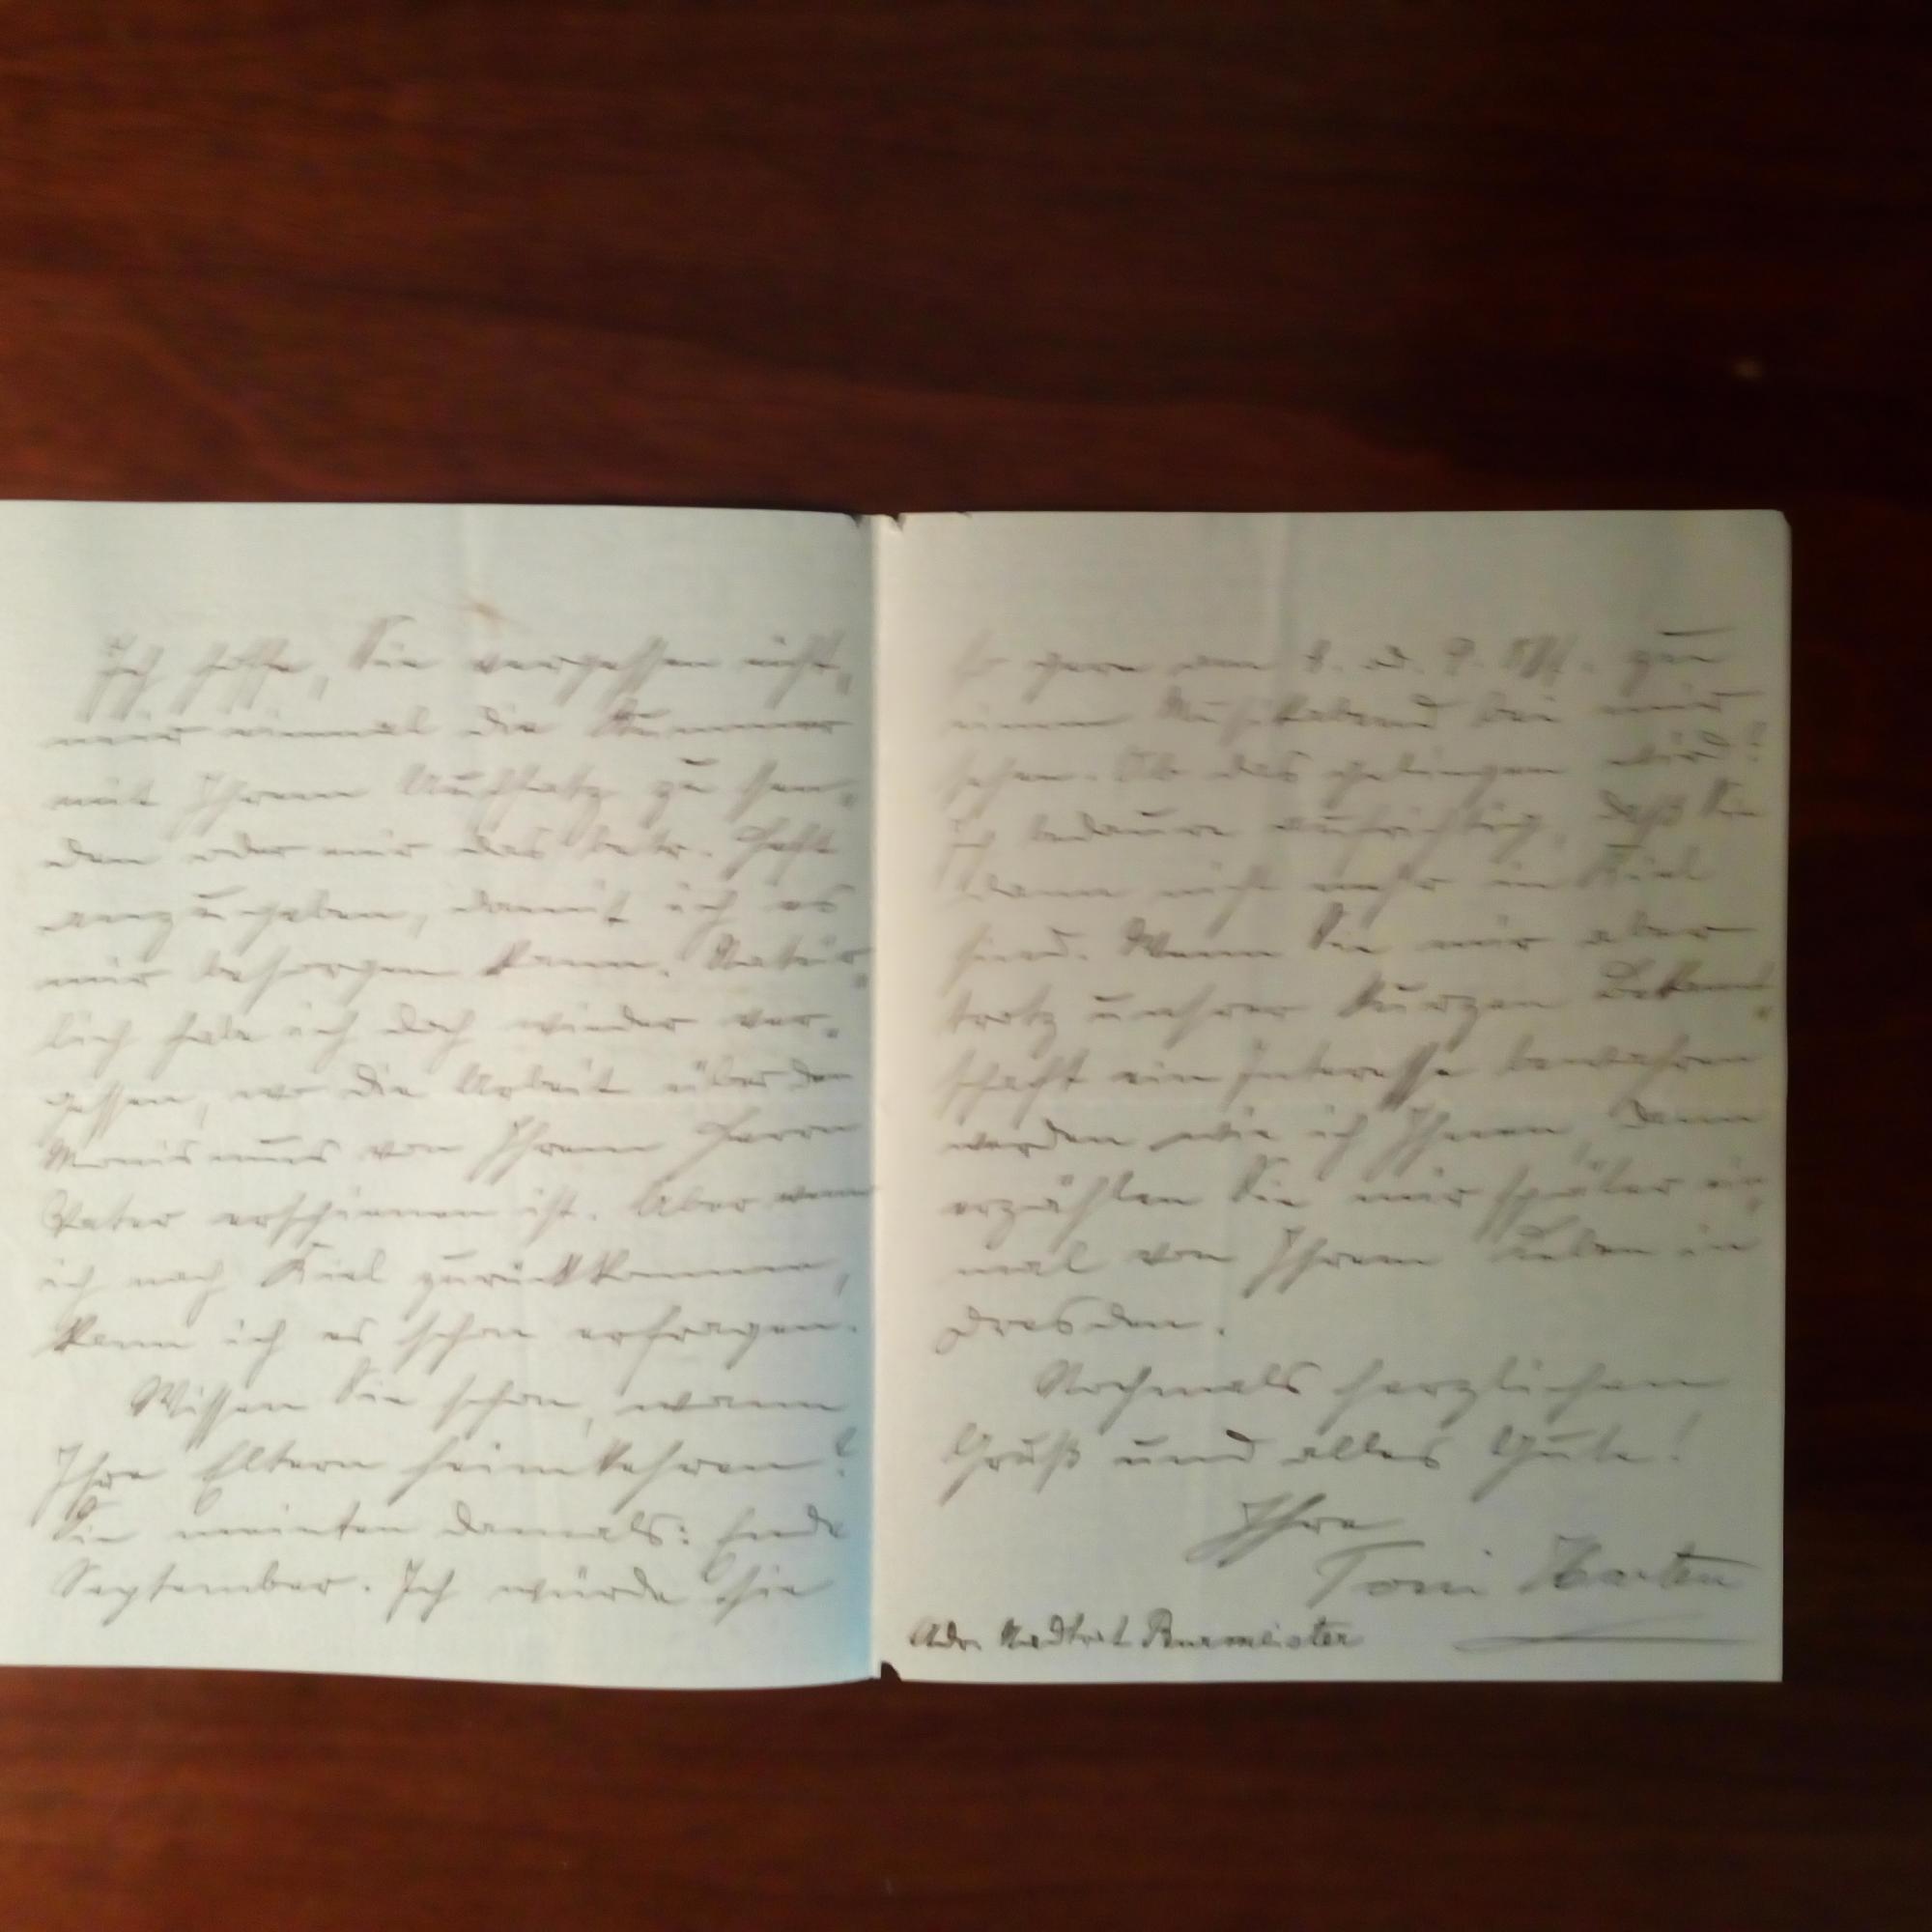 Ich hoffe, Sie vergessen nicht,
mir einmal die Nummer
mit Ihrem Aufsatz zu sen-
den oder mir das betr. Heft
anzugeben, damit ich es
mir besorgen kann. Natür-
lich habe ich doch wieder ver-
gessen, wo die Arbeit über den
Monismus von Ihrem Herrn
Vater erschienen ist. Aber wenn
ich nach Kiel zurückkomme,
kann ich es schon erfragen.
Wissen Sie schon, wann
Ihre Eltern heimkehren?
Sie meinten damals: Ende
September. Ich würde sie
so gern am zu
einem Musikabend bei mir
sehen. Ob das gelingen wird?
Ich bedaure aufrichtig, daß Sie
dann nicht mehr in Kiel
sind. Wenn Sie mir aber
trotz unsrer kurzen Bekannt-
schaft ein Interesse bewahren
werden wie ich Ihnen, dann
erzählen Sie mir später ein-
mal von Ihrem Leben in
Dresden.
Nochmals herzlichen
Gruß und alles Gute!
Ihre
Toni Harten
Adr. Burmeister